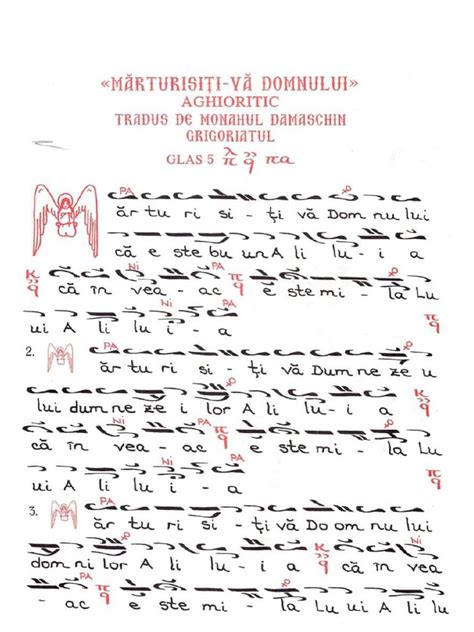 «MĂRTURISIȚI-VĂ DOMNULUI»
AGHIORITIC
TRADUS DE MONAHUL DAMASCHIN
GRIGORIATUL
GLAS 5 πα
ăr tu ri si - ți vă Dom nu lui
că e ste bu un A li lu - i a
că în vea - ac ĕ ste mi - la Lu
ui A li lu i - a
2. ăr tu ri si - ți vă Dum ne ze u
lui dum ne ze i lor A li lu - i a
că în vea - ac ĕ ste mi - la Lu
ui A li lu i - a
3. ăr tu ri si - ți vă Do om nu lui
dom ni lor A li lu - i a că în vea
- ac ĕ ste mi - la Lu ui A li lu